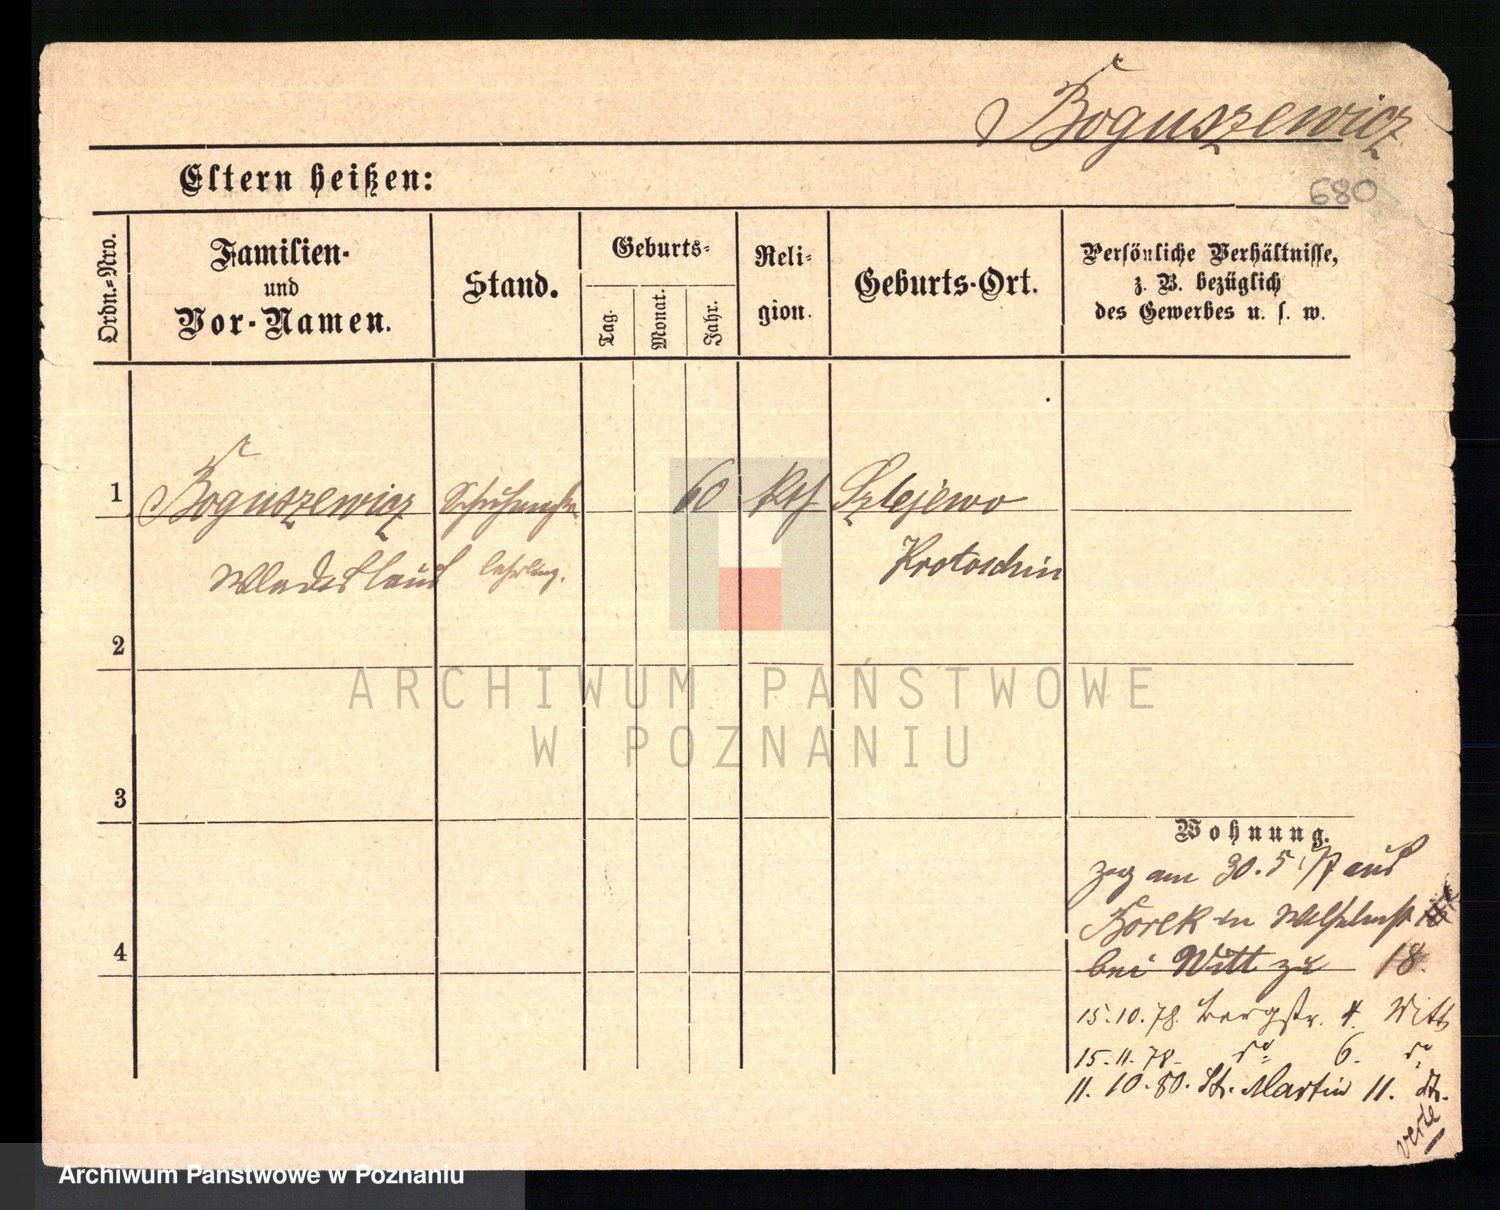 Boguszewicz
Eltern heißen:
680
Ordn.-Nro.
Familien-
und
Vor-Namen.
Stand.
Geburts-
Tag.
Monat.
Jahr.
Reli-
gion.
Geburts-Ort.
Persönliche Verhältnisse,
z. B. bezüglich
des Gewerbes u. s. w.
1 Boguszewicz 60 Kth
Wladeslaus lehrling.
Krotoschin
2
3
4
ARCHIWUM PAŃSTWOWE
W POZNANIU
Wohnung.
zog am 30.5. aus
Borek in Wilhelmstr
bei Witt zu 18.
15.10.78. Bergstr. 4. Witt
15.11.78. do 6. do
11.10.80. St. Martin 11.
verte
Archiwum Państwowe w Poznaniu